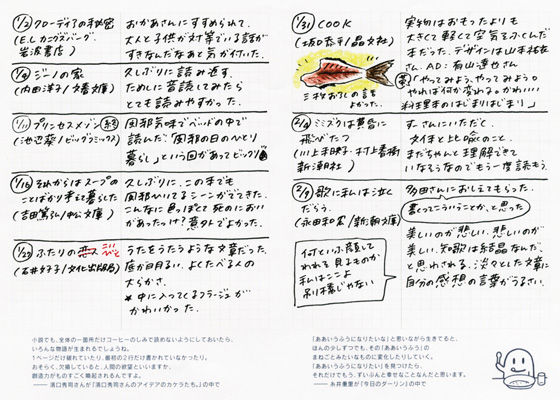 1/2 クローディアの秘密
(E.L.カニグズバーグ
岩波書店)
おかあさんにすすめられて。
大人と子供が対等でいる話が
すきなんだなあと気が付いた。
1/9 ジーノの家
(内田洋子/文春文庫)
久しぶりに読み返す。
ために音読してみたら
とても読みやすかった。
1/11 プリンセスメゾン 終
(池辺葵/ビッグコミックス)
風邪気味でベッドの中で
読んだ「風邪の日のひとり
暮らし」という回があってビックリ
1/18 それからはスープの
ことばかり考えて暮らした
(吉田篤弘/中公文庫)
久しぶりに。この本でも
風邪ひいてるシーンがでてきた。
こんなに色っぽくて死のにおい
があったっけ?意外でよかった。
1/29 ふたりの恋人 こいびと
(石井好子/文化出版局)
うたをうたうような文章だった。
底が明るい。よくたべる人の
大らかさ。
*中に入ってくるフラージュが
かわいかった。
1/31 COOK
(坂口恭平/晶文社)
三枚おろしの言も
よかった。
実物はおもったよりも
大きくて軽くて空気をふくんだ
本だった。デザインは山本祐衣
さん、AD:有山達也さん
「やってみよう、やってみよう。
やれば何か変わる。かわいい
料理書のはじまりはじまり」
2/4 ミミズクは黄昏に
飛びたつ
(川上未映子・村上春樹
新潮社)
すーさんにいただく。
文体と比喩のこと。
まだちゃんと理解できて
いなそうなのでもう一度読もう。
2/9 歌に私は泣く
だらう。
(永田和宏/新潮文庫)
多田さんにおしえてもらった。
書くってこういうことか、と思った
何といふ顔して
われを見るものか
私はここよ
吊り橋ぢやない
美しいのが悲しい、悲しいのが
美しい。短歌は結晶なんだ、
と思わされる。淡々とした文章に
自分の感想の言葉がうるさい。
小説でも、全体の一箇所だけコーヒーのしみで読めないようにしておいたら、
いろんな物語が生まれるでしょうね。
1ページだけ破れていたり、最初の2行だけ書かれていなかったり。
おそらく、欠損していると、人間の欲望といいますか、
創造力がものすごく喚起されるんですよ。
── 濱口秀司さんが「濱口秀司さんのアイデアのカケラたち。」の中で
「ああいうふうになりたいな」と思いながら生きてると、
ほんの少しずつでも、その「ああいうふう」の
まねごとみたいなものに変化したりしていく。
「ああいうふうになりたい」を見つけたら、
それだけでもう、ずいぶんと幸せなことなんだと思います。
── 糸井重里が「今日のダーリン」の中で